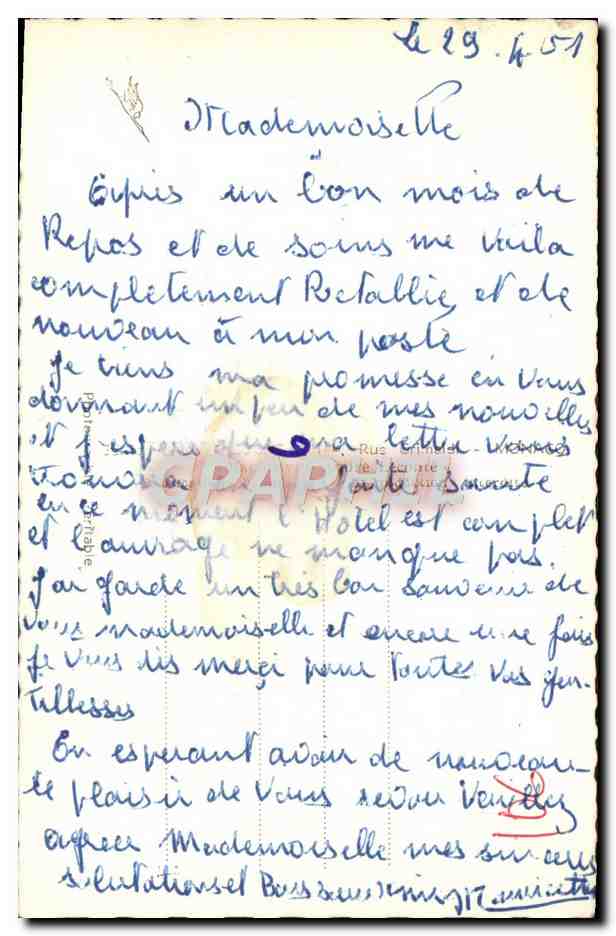 le 29.4.51
Mademoiselle
Après un bon mois de
Repos et de soins me voila
completement Retablie, et de
nouveau à mon poste
Je tiens ma promesse en vous
donnant un peu de mes nouvelles
et j'espere que ma lettre vous
en parfaite sante
en ce moment l'Hotel est complet
et l'ouvrage ne manque pas.
J'ai garde un très bon souvenir de
vous mademoiselle et encore une fois
je vous dis merçi pour toutes vos gen-
tillesses
En esperant avoir de nouveau
le plaisir de vous revoir Veuillez
agreer Mademoiselle mes sinceres
salutations et
CPARAMA
Rue Grimaldi MONACO